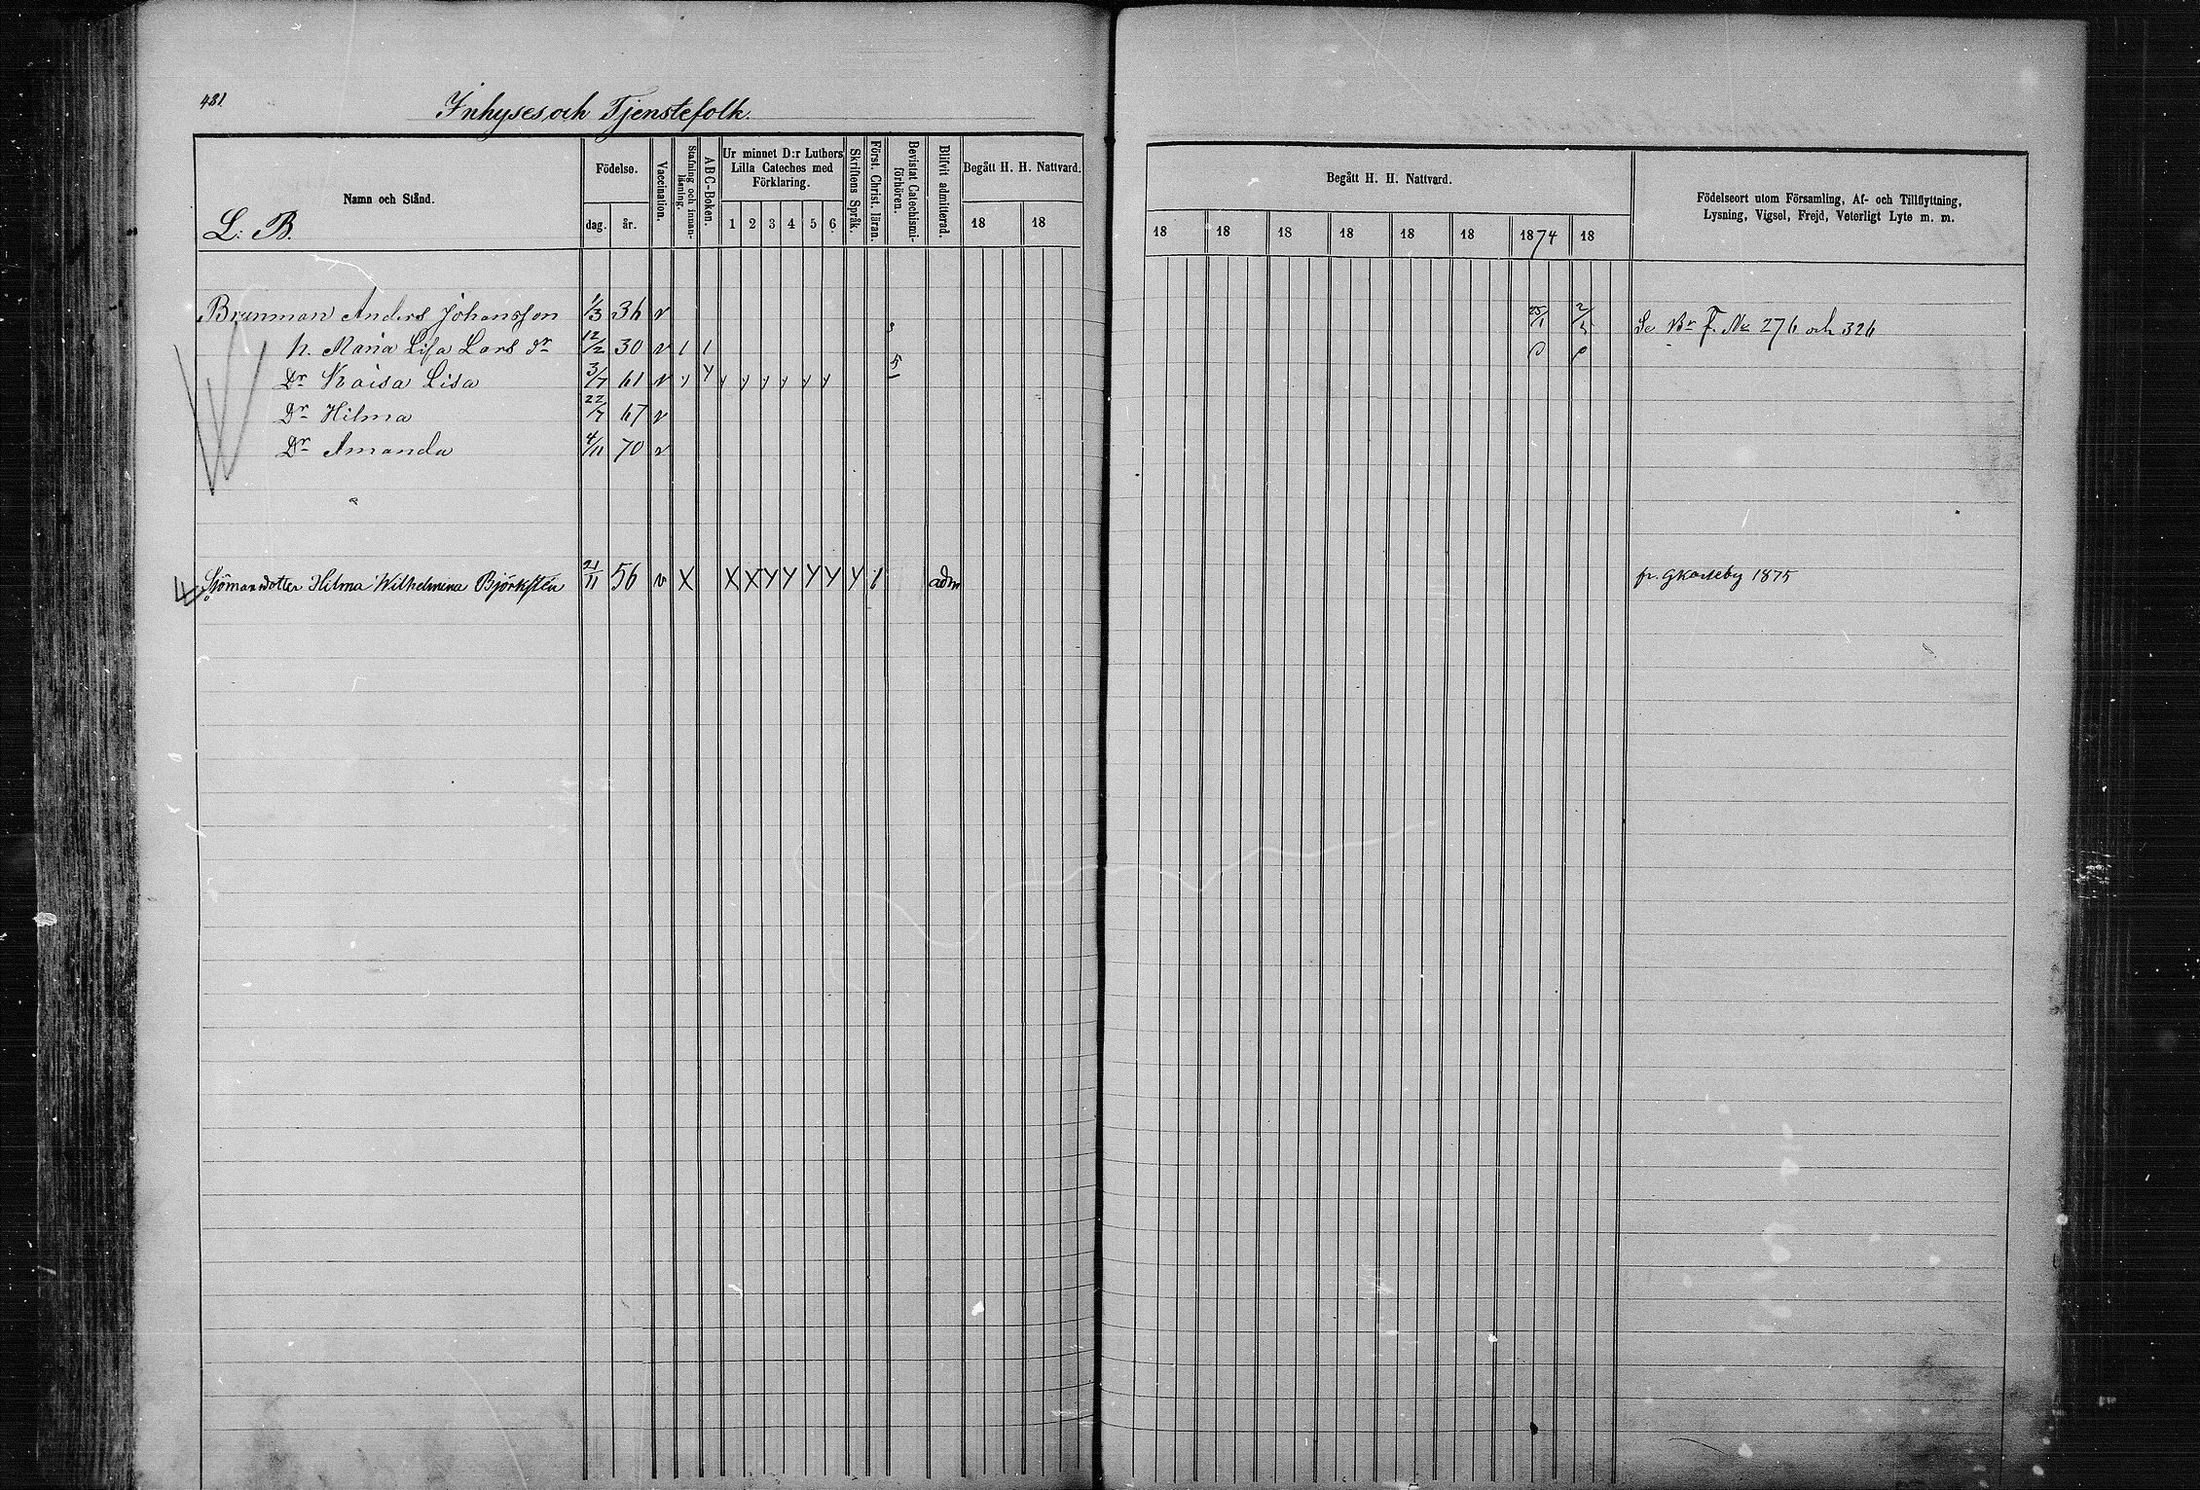 481
Inhyses och Tjenstefolk.
Namn och Stånd.
L: B.
Födelse.
dag. år.
Vaccination.
Stafning och innanläsning.
ABC-Boken.
Ur minnet D:r Luthers Lilla Cateches med Förklaring.
1 2 3 4 5 6
Skriftens Språk.
Först. Christ. läran.
Bevistat Catechismiförhören.
Blifvit admitterad.
Begått H. H. Nattvard.
18 18
Begått H. H. Nattvard.
18 18 18 18 18 18 1874 18
Födelseort utom Församling, Af- och Tillflyttning,
Lysning, Vigsel, Frejd, Veterligt Lyte m. m.
Brunman Anders Johansson 1/3 36 v 25/1 2/5 Se Br F. No 276 och 326
h. Maria Lisa Lars dr 12/2 30 v 1 1
Dr Kaisa Lisa 3/7 61 v y y y y y y y y 5
Dr Hilma 22/7 67 v
Dr Amanda 4/11 70 v
Sjömansdotter Hilma Wilhelmina Björkstén 21/11 56 v X X X y y y y y 1 adm fr. Gkarleby 1875